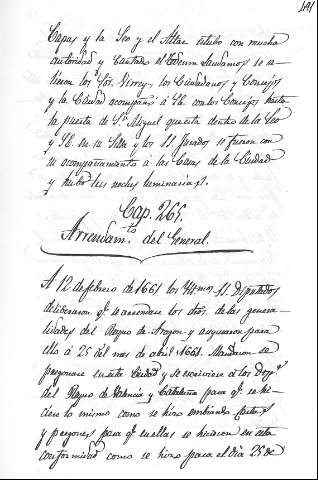 491
Capas y la Seo y el Altar estubo con mucha
autoridad y Cantado el Tedeum Laudamus se sa-
lieron los Sres. Virrey, los Ciudadanos y Consejos
y la Ciudad acompañó á SE. con los Consejos hasta
la puerta de Sn. Miguel que esta dentro de la Seo
y SE. en su Silla y los SS. Jurados se fueron con
su acompañamiento á las Casas de la Ciudad
y hubo tres noches luminarias.
Cap. 265.
Arrendamto. del General.
A 12 de febrero de 1661 los Illmos. SS. Diputados
deliberaron qe. se arrendase los dros. de las genera-
lidades del Reyno de Aragon y asignaron para
ello á 25 del mes de abril 1661. Mandaron se
pregonase en esta Ciudad y se escriviese á los Dipps.
del Reyno de Valencia y Cataluña para qe. se hi-
ciese lo mismo como se hizo embiando
y pregones para qe. en ellas se hiciesen en esta
conformidad como se hizo para el dia 25 de